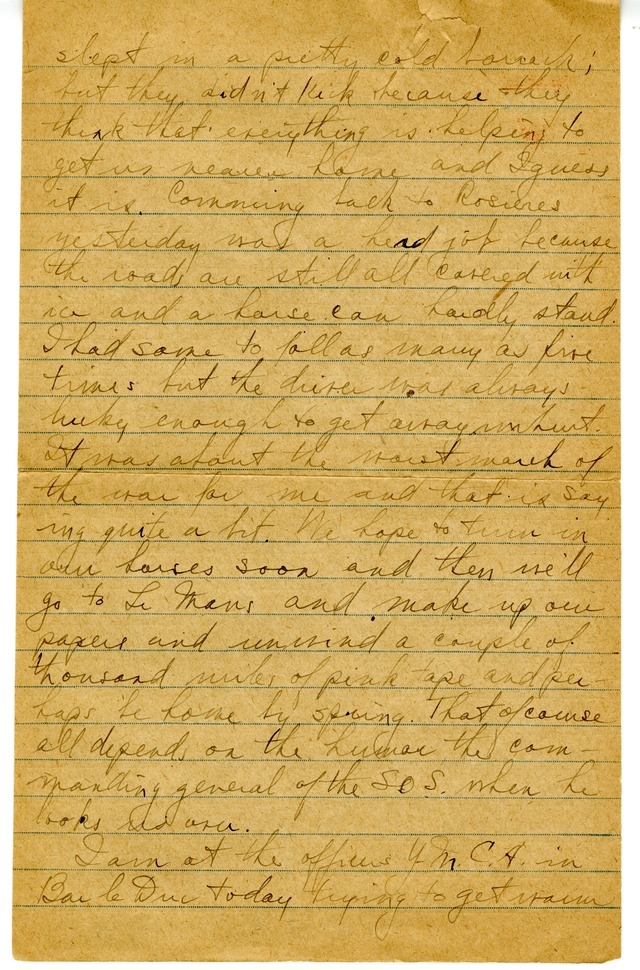 slept in a pretty cold barrack;
but they didn't kick because they
think that everything is helping to
get us nearer home and I guess
it is. Comming back to Rosieres
yesterday was a head job because
the roads are still all covered with
ice and a horse can hardly stand.
I had some to fall as many as five
times but the driver was always
lucky enough to get away unhurt.
It was about the worst march of
the war for me and that is say
ing quite a bit. We hope to turn in
our horses soon and then we'll
go to Le Mans and make up our
papers and unwind a couple of
thousand miles of pink tape and per-
haps be home by spring. That of course
all depends on the humor the com-
manding general of the S.O.S. when he
looks us over.
I am at the officers Y.M.C.A. in
Bar le Duc today trying to get warm